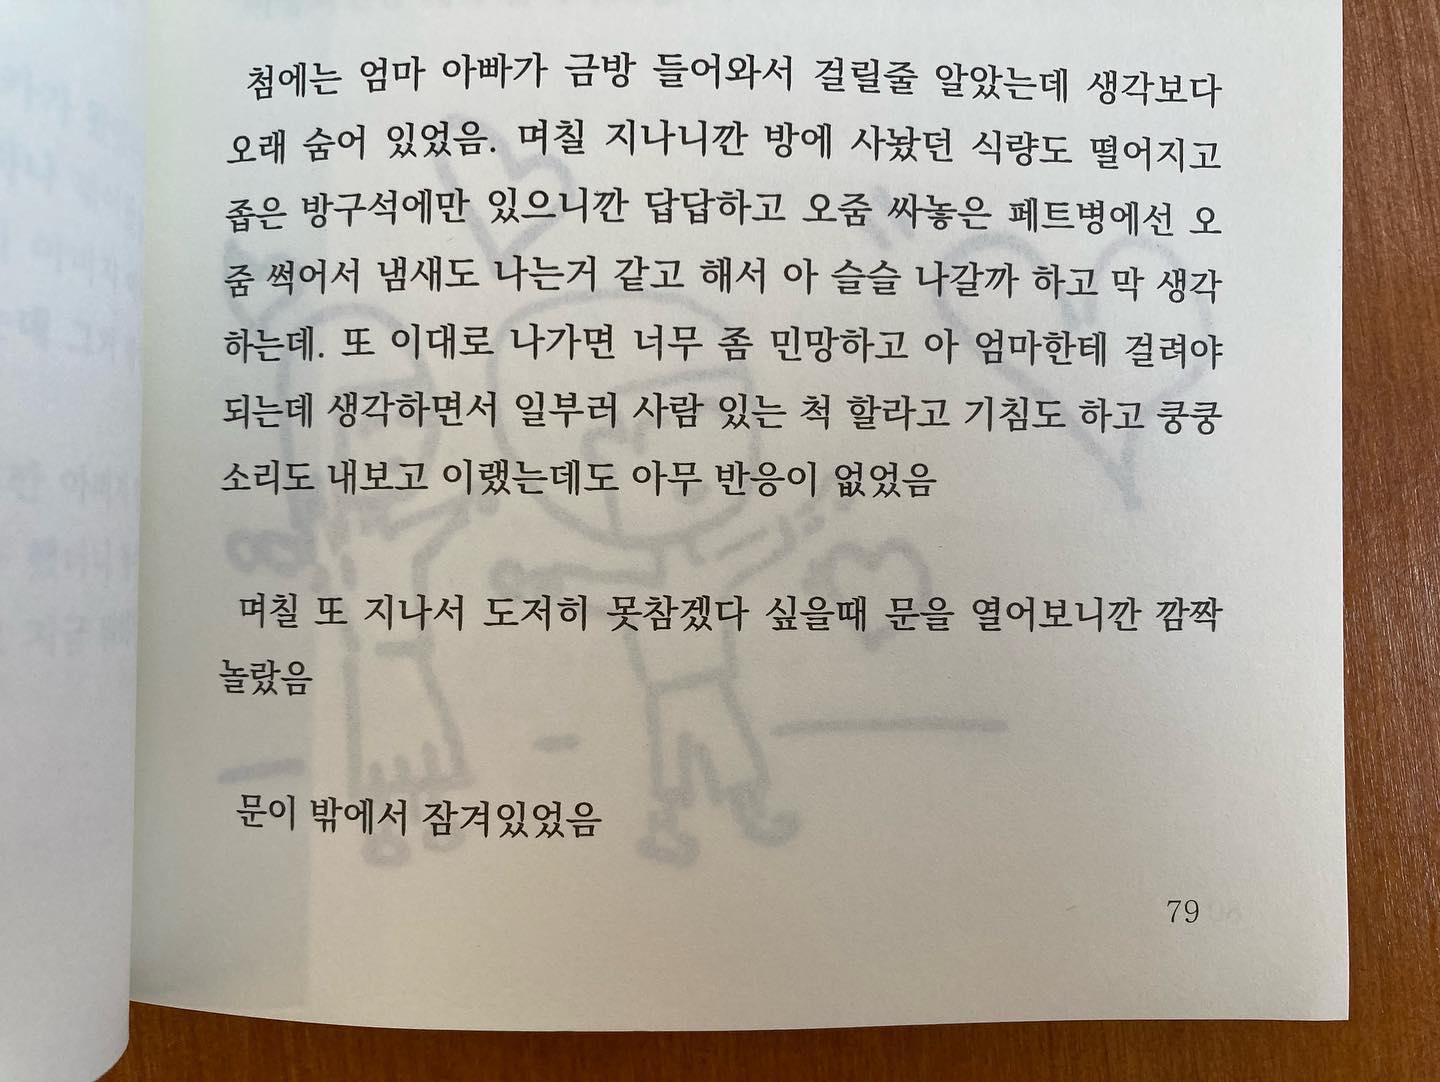 첨에는 엄마 아빠가 금방 들어와서 걸릴줄 알았는데 생각보다
오래 숨어 있었음. 며칠 지나니깐 방에 사놨던 식량도 떨어지고
좁은 방구석에만 있으니깐 답답하고 오줌 싸놓은 페트병에선 오
줌 썩어서 냄새도 나는거 같고 해서 아 슬슬 나갈까 하고 막 생각
하는데. 또 이대로 나가면 너무 좀 민망하고 아 엄마한테 걸려야
되는데 생각하면서 일부러 사람 있는 척 할라고 기침도 하고 쿵쿵
소리도 내보고 이랬는데도 아무 반응이 없었음
며칠 또 지나서 도저히 못참겠다 싶을때 문을 열어보니깐 깜짝
놀랐음
문이 밖에서 잠겨있었음
79